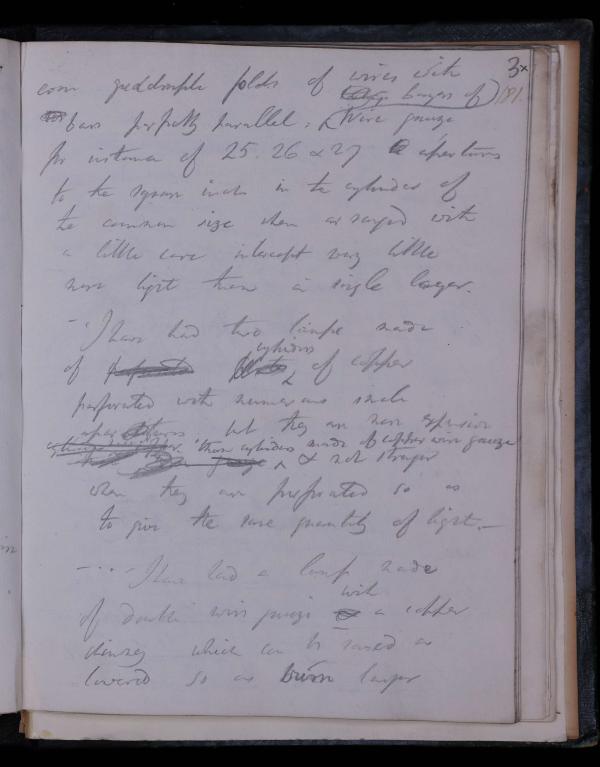 3x
181.
even quadruple folds of wires with
large layers of
bars perfectly parallel; Wire gauze
for instance of 25. 26 & 27 apertures
to the square inch in the cylinder of
the common size when arranged with
a little care intercept very little
more light than a single layer.
- I have had two lamps made
of cylinders of copper
perforated with numerous small
apertures but they are more expensive
than cylinders made of copper wire gauze
& not stronger
when they are perforated so as
to give the same quantity of light. -
- - - I have had a lamp made
of double wire gauze with a copper
chimney which can be raised or
lowered so as burn larger